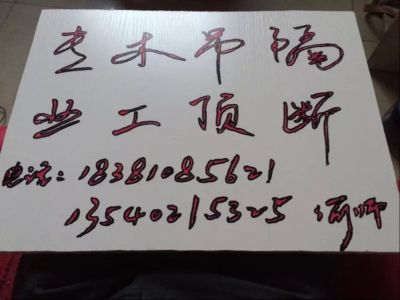 专木吊隔
业工顶断
电话：18381085621
13540215325 俞师